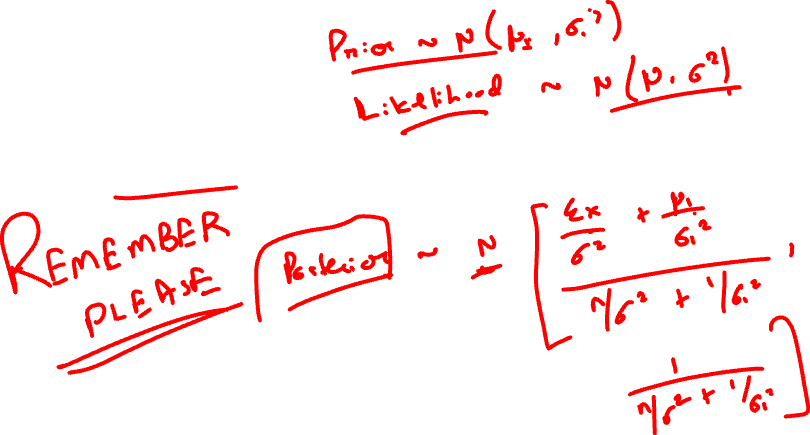 Prior ~ N(μ₁, σ₁²)
Likelihood ~ N(μ, σ²)
REMEMBER
PLEASE
Posterior ~ N [ (Σx/σ² + μ₁/σ₁²) / (n/σ² + 1/σ₁²) ,
1 / (n/σ² + 1/σ₁²) ]